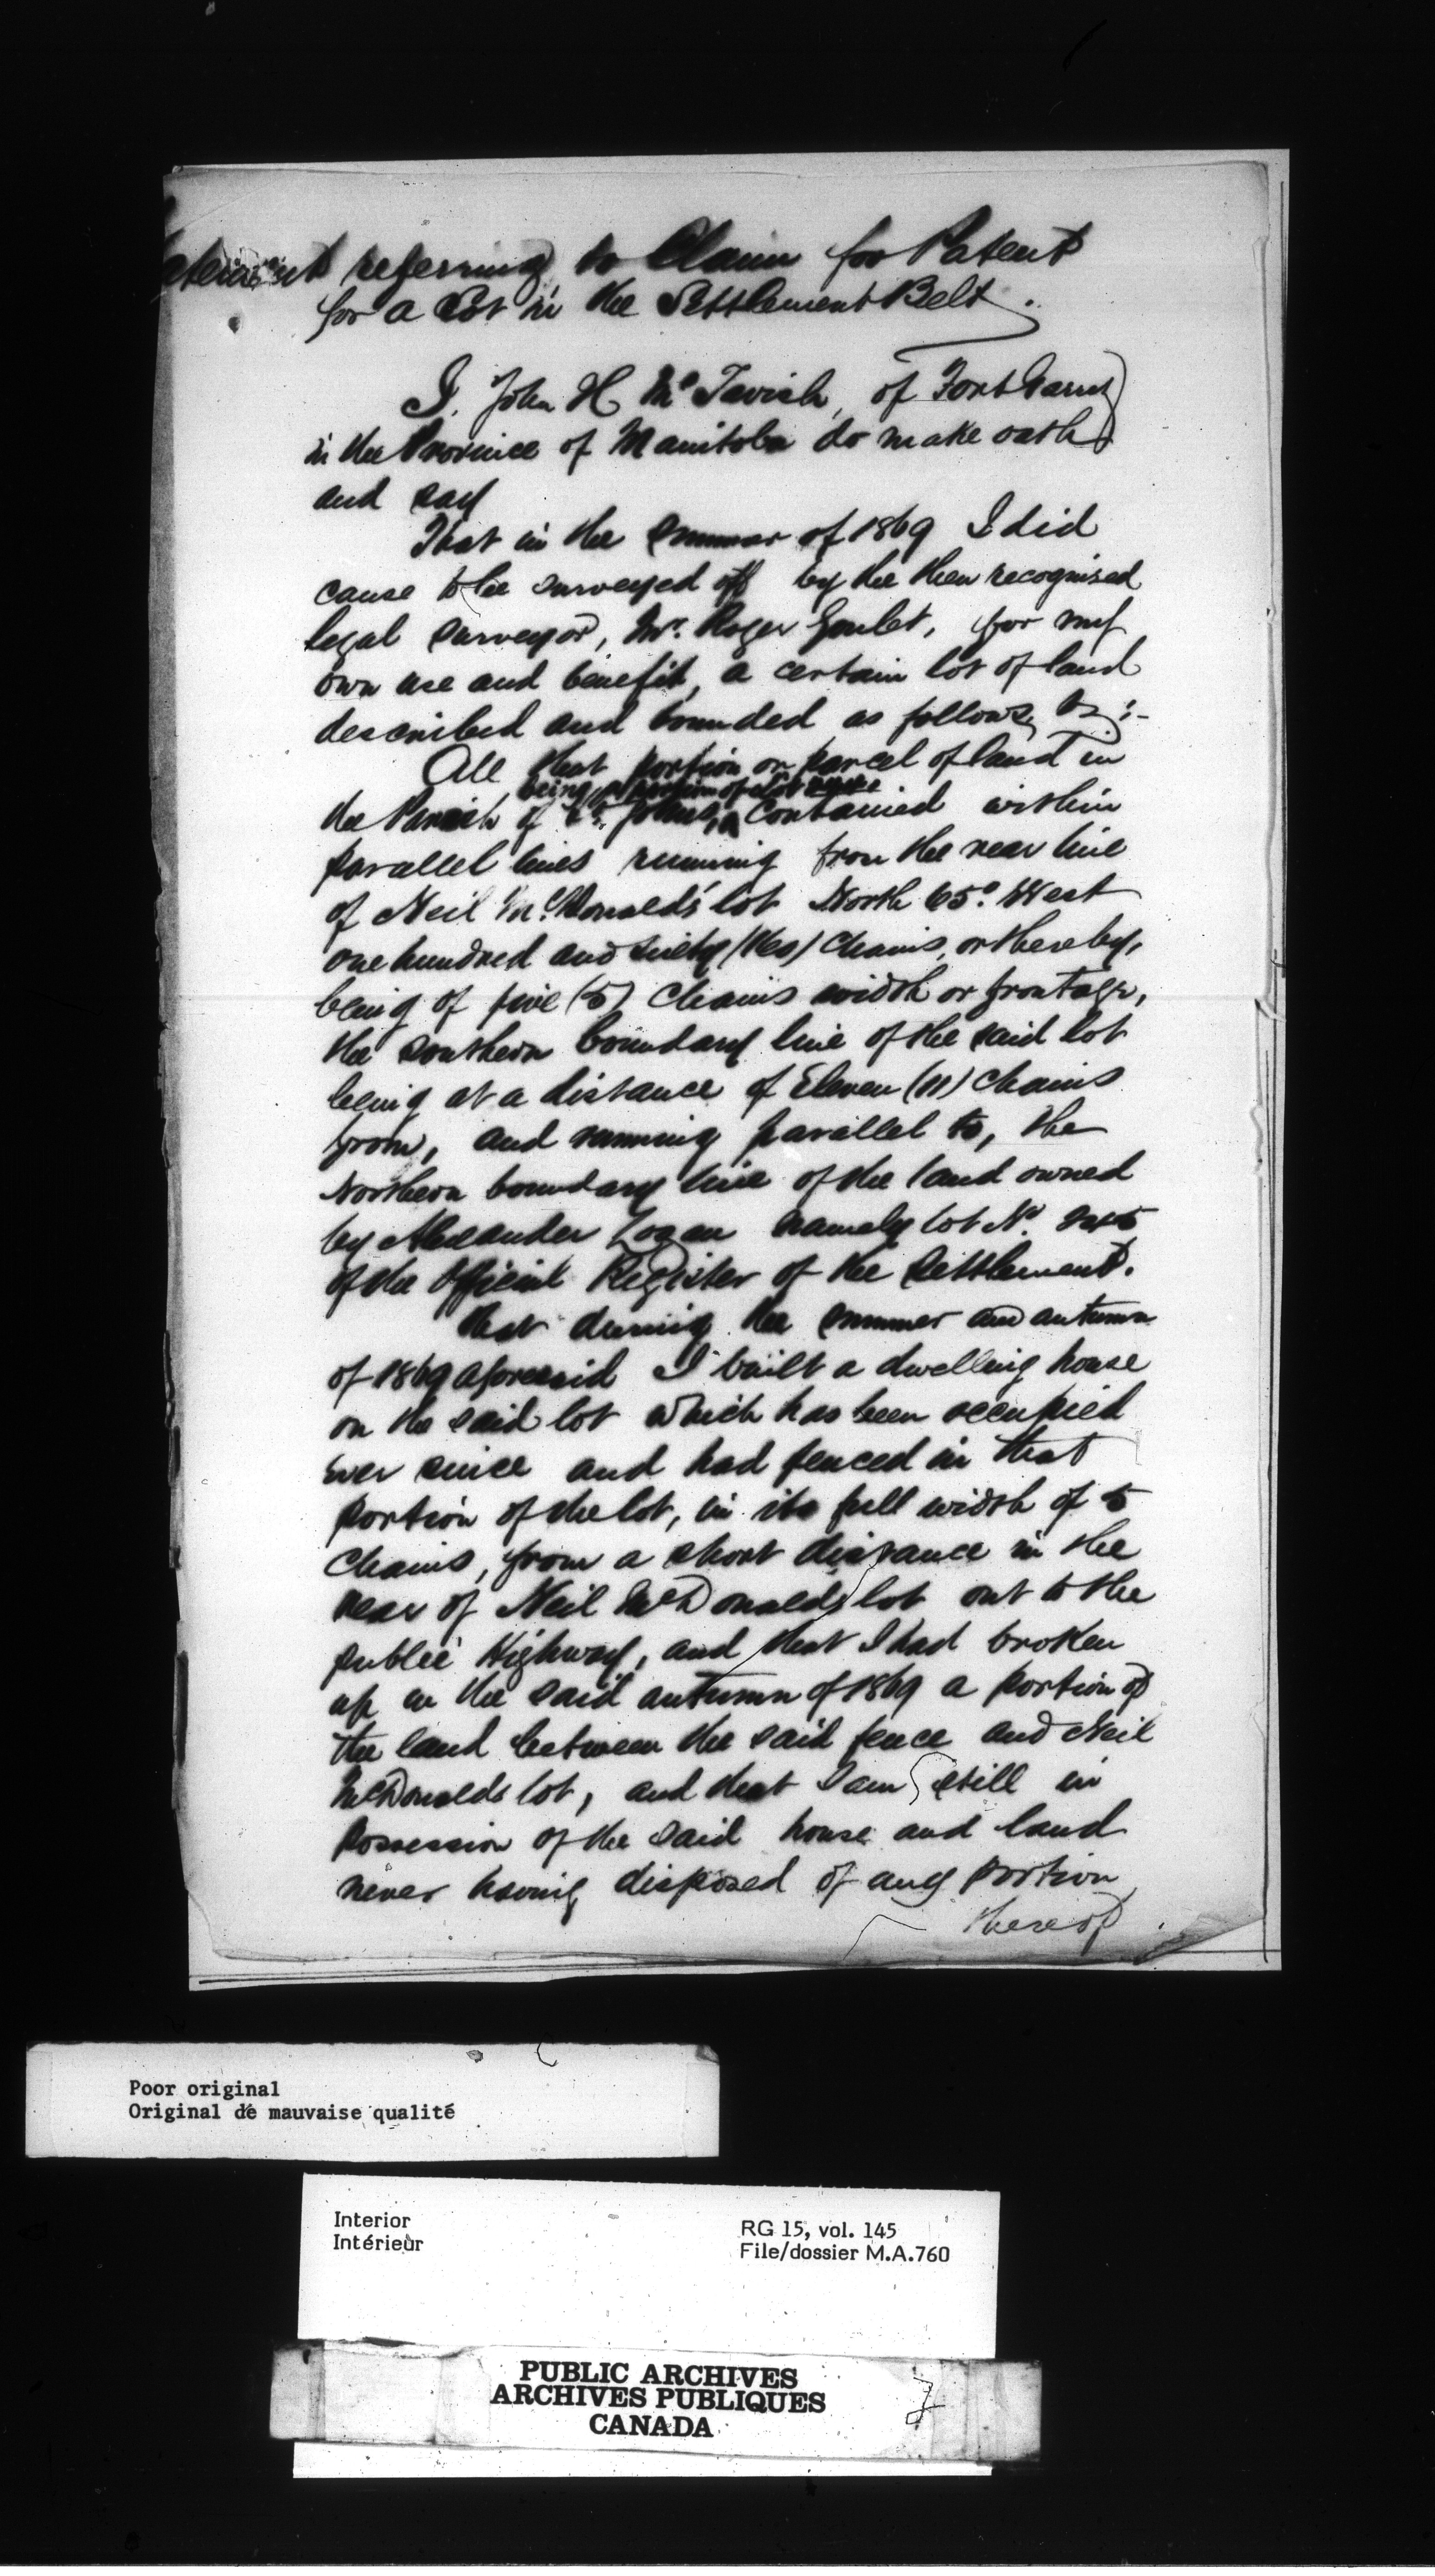 referring to Claim for Patent
for a Lot in the Settlement Belt.
I, John H McTavish, of Fort Garry
in the Province of Manitoba do make oath
and say
That in the summer of 1869 I did
cause to be surveyed off by the then recognised
legal surveyor, Mr. Roger Goulet, for my
own use and benefit, a certain lot of land
described and bounded as follows, viz:-
All that portion or parcel of land in
being a portion of Lot
the Parish of St. Johns, contained within
parallel lines running from the rear line
of Neil McDonald's lot North 65° West
one hundred and sixty (160) chains, or thereby,
being of five (5) chains width or frontage,
the southern boundary line of the said lot
being at a distance of Eleven (11) chains
from, and running parallel to, the
Northern boundary line of the land owned
by Alexander Logan namely lot No.
of the Official Register of the Settlement.
That during the summer and autumn
of 1869 aforesaid I built a dwelling house
on the said lot which has been occupied
ever since and had fenced in that
portion of the lot, in its full width of 5
chains, from a short distance in the
rear of Neil McDonalds lot out to the
public Highway, and that I had broken
up in the said autumn of 1869 a portion of
the land between the said fence and Neil
McDonalds lot, and that I am still in
possession of the said house and land
never having disposed of any portion
thereof
Poor original
Original de mauvaise qualité
Interior
Intérieur
RG 15, vol. 145
File/dossier M.A.760
PUBLIC ARCHIVES
ARCHIVES PUBLIQUES
CANADA